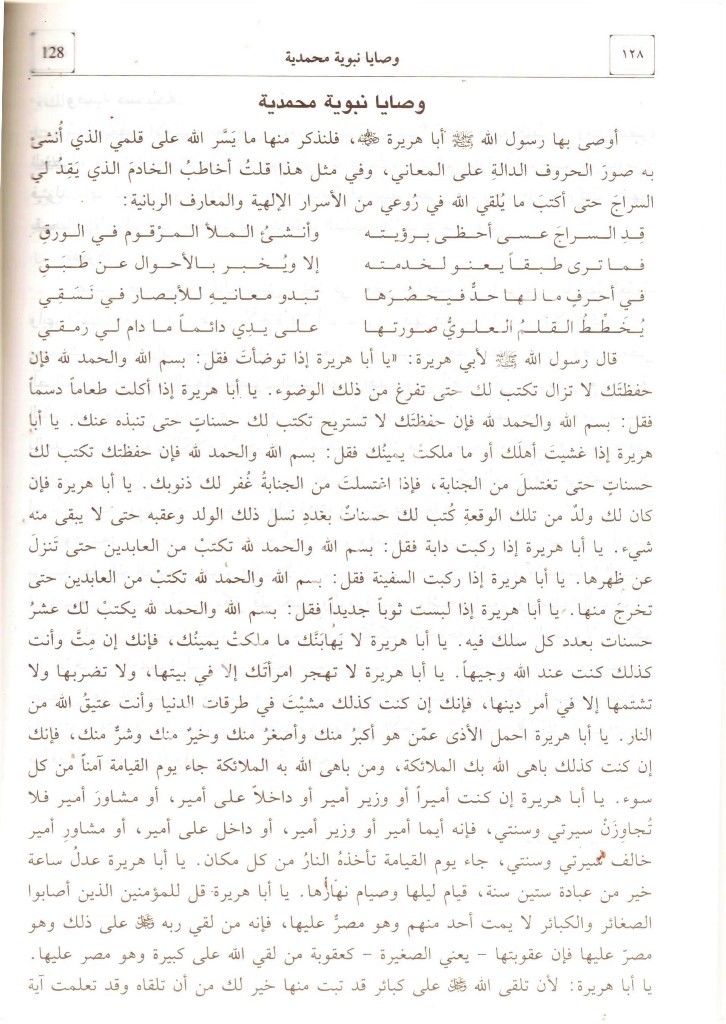 128
وصايا نبوية محمدية
١٢٨
وصايا نبوية محمدية
أوصى بها رسول الله ﷺ أبا هريرة رضي الله عنه، فلنذكر منها ما يَسَّر الله على قلمي الذي أُنشئ
به صورَ الحروف الدالة على المعاني، وفي مثل هذا قلتُ أخاطبُ الخادمَ الذي يَقِدُ لي
السراجَ حتى أكتبَ ما يُلقي الله في رُوعي من الأسرار الإلهية والمعارف الربانية:
قِدِ الـسـراجَ عـسـى أحـظـى بـرؤيـتـه وأنـشـئُ الـمـلأ الـمـرْقـوم فـي الـورقِ
فـمـا تـرى طـبـقـاً يـعـنـو لـخـدمـتـه إلا ويُـخـبـر بـالأحـوال عـن طَـبَـقِ
فـي أحـرفٍ مـا لـهـا حـدٌّ فـيـحـصُـرَهـا تـبـدو مـعـانـيـه للأبـصـار فـي نَـسَـقِـي
يُـخَـطِّـطُ الـقـلـمُ الـعـلـويُّ صـورتـهـا عـلـى يـدِي دائـمـاً مـا دام لـي رمـقـي
قال رسول الله ﷺ لأبي هريرة: «يا أبا هريرة إذا توضأتَ فقل: بسم الله والحمد لله فإن
حفظتَك لا تزال تكتب لك حتى تفرغ من ذلك الوضوء. يا أبا هريرة إذا أكلت طعاماً دسماً
فقل: بسم الله والحمد لله فإن حفظتَك لا تستريح تكتب لك حسناتٍ حتى تنبذه عنك. يا أبا
هريرة إذا غشيتَ أهلَك أو ما ملكتْ يمينُك فقل: بسم الله والحمد لله فإن حفظتك تكتب لك
حسناتٍ حتى تغتسلَ من الجنابة، فإذا اغتسلتَ من الجنابةُ غُفر لك ذنوبك. يا أبا هريرة فإن
كان لك ولدٌ من تلك الوقعةِ كُتب لك حسناتٌ بعَددِ نسل ذلك الولد وعقبه حتى لا يبقى منه
شيء. يا أبا هريرة إذا ركبت دابة فقل: بسم الله والحمد لله تكتبْ من العابدين حتى تَنزلَ
عن ظهرها. يا أبا هريرة إذا ركبت السفينة فقل: بسم الله والحمد لله تكتبْ من العابدين حتى
تخرجَ منها. يا أبا هريرة إذا لبست ثوباً جديداً فقل: بسم الله والحمد لله يكتبْ لك عشرُ
حسنات بعدد كل سلك فيه. يا أبا هريرة لا يَهابَنَّك ما ملكتْ يمينُك، فإنك إن مِتَّ وأنت
كذلك كنت عند الله وجيهاً. يا أبا هريرة لا تهجر امرأتَك إلا في بيتها، ولا تضربها ولا
تشتمها إلا في أمر دينها، فإنك إن كنت كذلك مشيْتَ في طرقات الدنيا وأنت عتيقُ الله من
النار. يا أبا هريرة احمل الأذى عمّن هو أكبرُ منك وأصغرُ منك وخيرٌ منك وشرٌّ منك، فإنك
إن كنت كذلك باهى الله بك الملائكة، ومن باهى الله به الملائكة جاء يوم القيامة آمناً من كل
سوء. يا أبا هريرة إن كنت أميراً أو وزير أمير أو داخلاً على أمير، أو مشاورَ أمير فلا
تُجاوِزَنْ سيرتي وسنتي، فإنه أيما أمير أو وزير أمير، أو داخل على أمير، أو مشاورِ أمير
خالف سيرتي وسنتي، جاء يوم القيامة تأخذهُ النارُ من كل مكان. يا أبا هريرة عدلُ ساعة
خير من عبادة ستين سنة، قيام ليلها وصيام نهارُها. يا أبا هريرة قل للمؤمنين الذين أصابوا
الصغائر والكبائر لا يمت أحد منهم وهو مصرٌّ عليها، فإنه من لقي ربه عز وجل على ذلك وهو
مصرّ عليها فإن عقوبتها - يعني الصغيرة - كعقوبة من لقي الله على كبيرة وهو مصر عليها.
يا أبا هريرة: لأن تلقى الله عز وجل على كبائر قد تبت منها خير لك من أن تلقاه وقد تعلمت آية